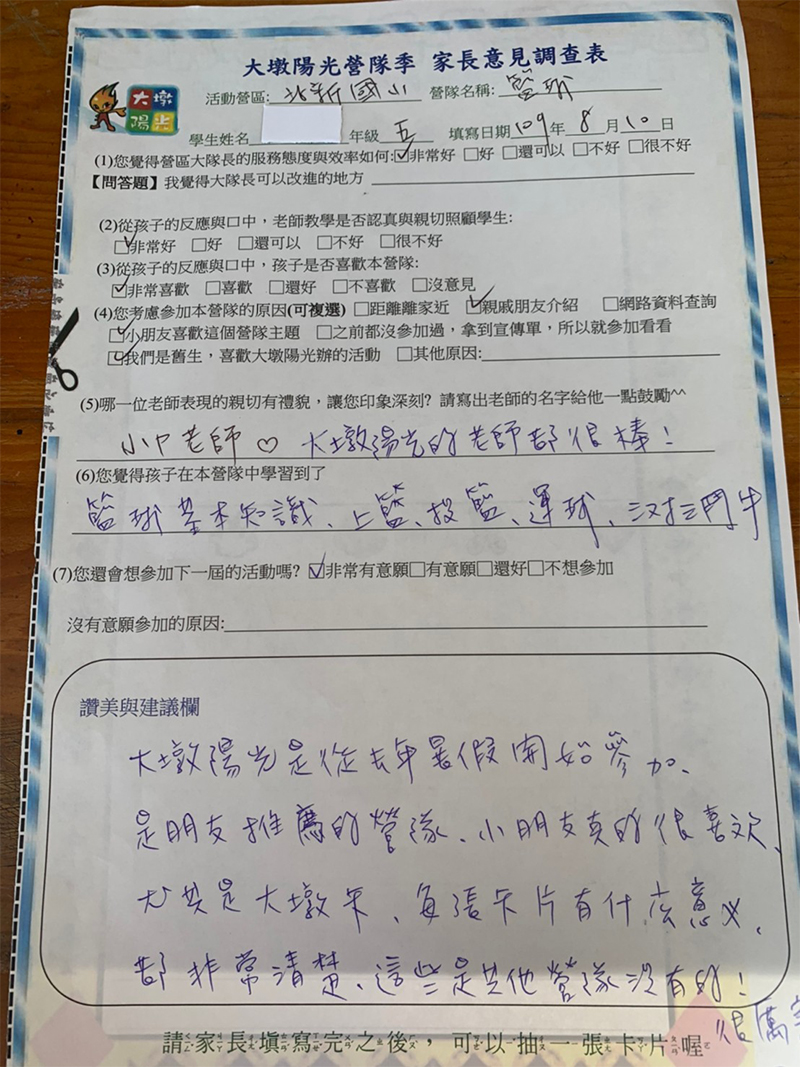 大墩陽光營隊季 家長意見調查表
大墩
陽光
活動營區: 北新國小 營隊名稱: 籃球
學生姓名 年級 五 填寫日期 109 年 8 月 10 日
(1)您覺得營區大隊長的服務態度與效率如何:☑非常好 □好 □還可以 □不好 □很不好
【問答題】我覺得大隊長可以改進的地方
(2)從孩子的反應與口中，老師教學是否認真與親切照顧學生:
☑非常好 □好 □還可以 □不好 □很不好
(3)從孩子的反應與口中，孩子是否喜歡本營隊:
☑非常喜歡 □喜歡 □還好 □不喜歡 □沒意見
(4)您考慮參加本營隊的原因(可複選) □距離離家近 ☑親戚朋友介紹 □網路資料查詢
☑小朋友喜歡這個營隊主題 □之前都沒參加過，拿到宣傳單，所以就參加看看
☑我們是舊生，喜歡大墩陽光辦的活動 □其他原因:
(5)哪一位老師表現的親切有禮貌，讓您印象深刻? 請寫出老師的名字給他一點鼓勵^^
小P老師♡ 大墩陽光的老師都很棒!
(6)您覺得孩子在本營隊中學習到了
籃球基本知識、上籃、投籃、運球、三對三鬥牛
(7)您還會想參加下一屆的活動嗎? ☑非常有意願□有意願□還好□不想參加
沒有意願參加的原因:
讚美與建議欄
大墩陽光是從去年暑假開始參加、
是朋友推薦的營隊、小朋友真的很喜歡、
尤其是大墩卡、每張卡片有什么意义、
都非常清楚、這些是其他營隊沒有的!
很厲害
請家長填寫完之後，可以抽一張卡片喔